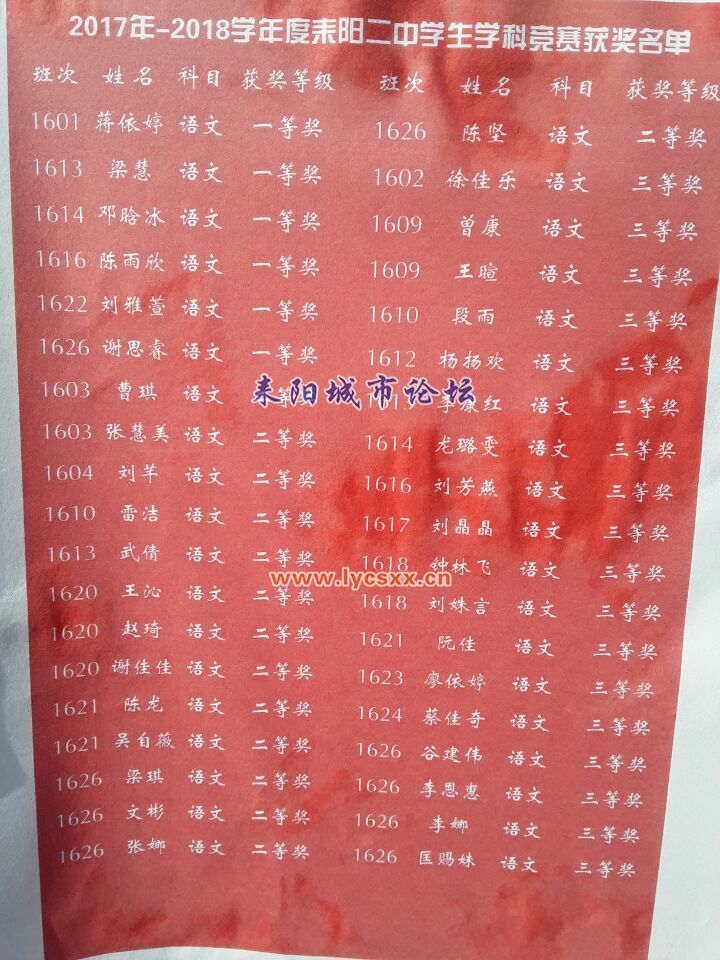 2017年-2018学年度耒阳二中学生学科竞赛获奖名单
班次 姓名 科目 获奖等级
1601 蒋依婷 语文 一等奖
1613 梁慧 语文 一等奖
1614 邓晗冰 语文 一等奖
1616 陈雨欣 语文 一等奖
1622 刘雅萱 语文 一等奖
1626 谢思睿 语文 一等奖
1603 曹琪 语文 等奖
1603 张慧美 语文 二等奖
1604 刘芊 语文 二等奖
1610 雷洁 语文 二等奖
1613 武倩 语文 二等奖
1620 王沁 语文 二等奖
1620 赵琦 语文 二等奖
1620 谢佳佳 语文 二等奖
1621 陈龙 语文 二等奖
1621 吴自薇 语文 二等奖
1626 梁琪 语文 二等奖
1626 文彬 语文 二等奖
1626 张娜 语文 二等奖
班次 姓名 科目 获奖等级
1626 陈坚 语文 二等奖
1602 徐佳乐 语文 三等奖
1609 曾康 语文 三等奖
1609 王暄 语文 三等奖
1610 段雨 语文 三等奖
1612 杨扬欢 语文 三等奖
李康红 语文 三等奖
1614 龙璐雯 语文 三等奖
1616 刘芳燕 语文 三等奖
1617 刘晶晶 语文 三等奖
1618 钟林飞 语文 三等奖
1618 刘姝言 语文 三等奖
1621 阮佳 语文 三等奖
1623 廖依婷 语文 三等奖
1624 蔡佳奇 语文 三等奖
1626 谷建伟 语文 三等奖
1626 李恩惠 语文 三等奖
1626 李娜 语文 三等奖
1626 匡赐妹 语文 三等奖
耒阳城市论坛
www.lycsxx.cn